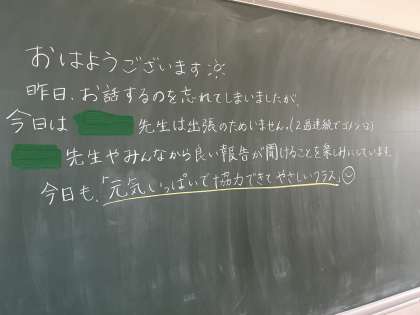 おはようございます
昨日、お話するのを忘れてしまいましたが、
今日は 先生は出張のためいません。(2週連続でゴメンネ)
先生やみんなから良い報告が聞けることを楽しみにしています。
今日も、「元気いっぱいで協力できてやさしいクラス」